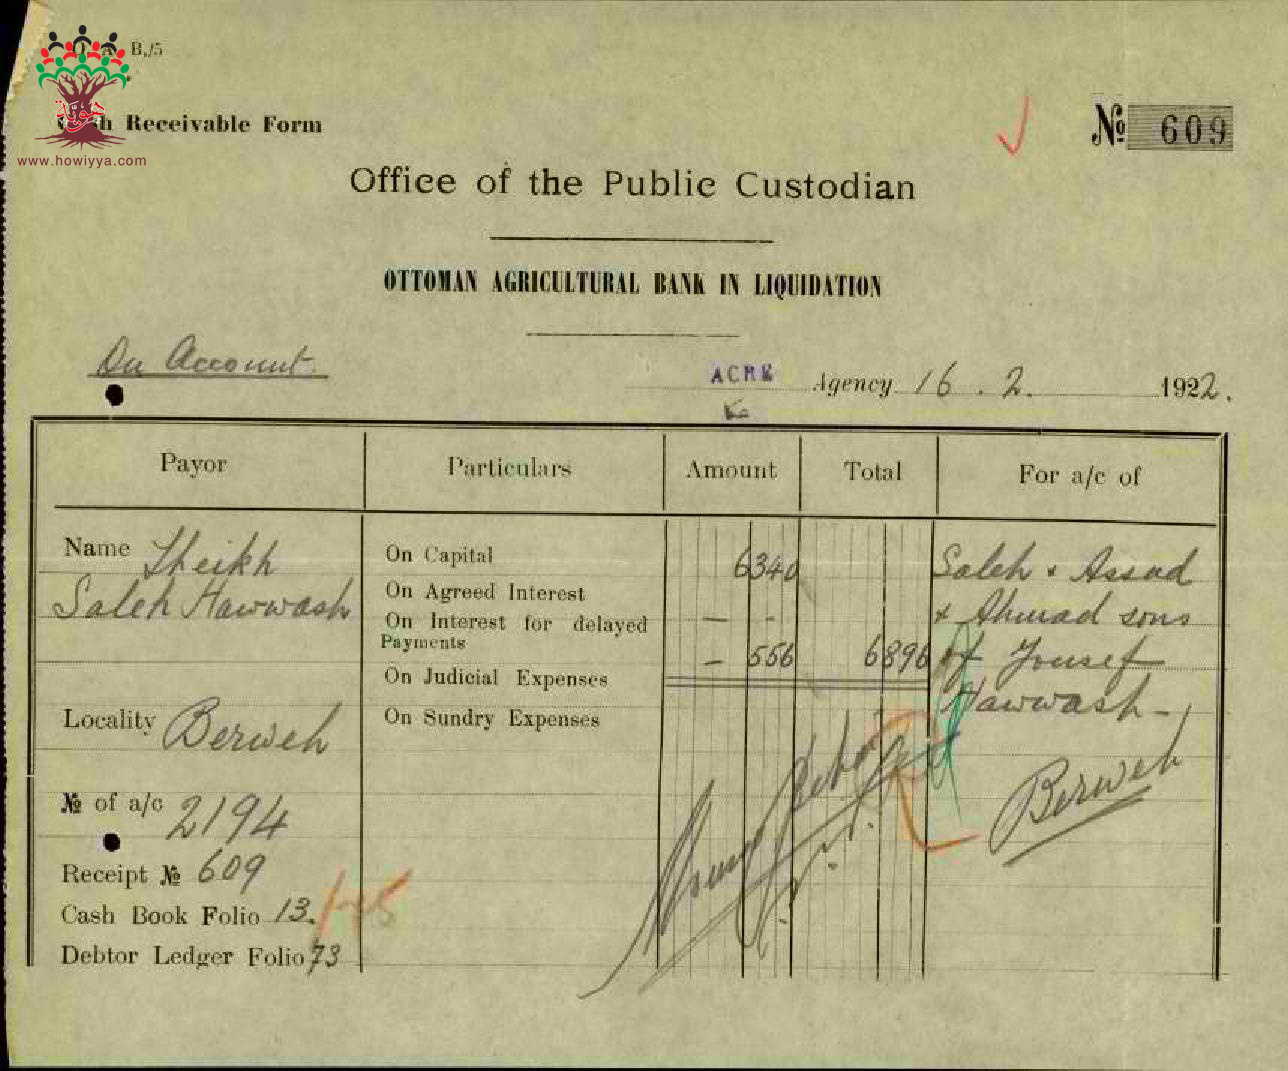 O. A. B./5
حوية
www.howiyya.com
Receivable Form
№ 609
Office of the Public Custodian
OTTOMAN AGRICULTURAL BANK IN LIQUIDATION
On Account.
ACRE Agency 16 . 2. 1922.
Payor Particulars Amount Total For a/c of
Name Sheikh
Saleh Hawwash
Locality Berweh
№ of a/c 2194
Receipt № 609
Cash Book Folio 13.
Debtor Ledger Folio 73
On Capital 6340
On Agreed Interest
On Interest for delayed — -
Payments
— 556 6896
On Judicial Expenses
On Sundry Expenses
Saleh & Assad
& Ahmad sons
of Yousef
Hawwash -
Berweh